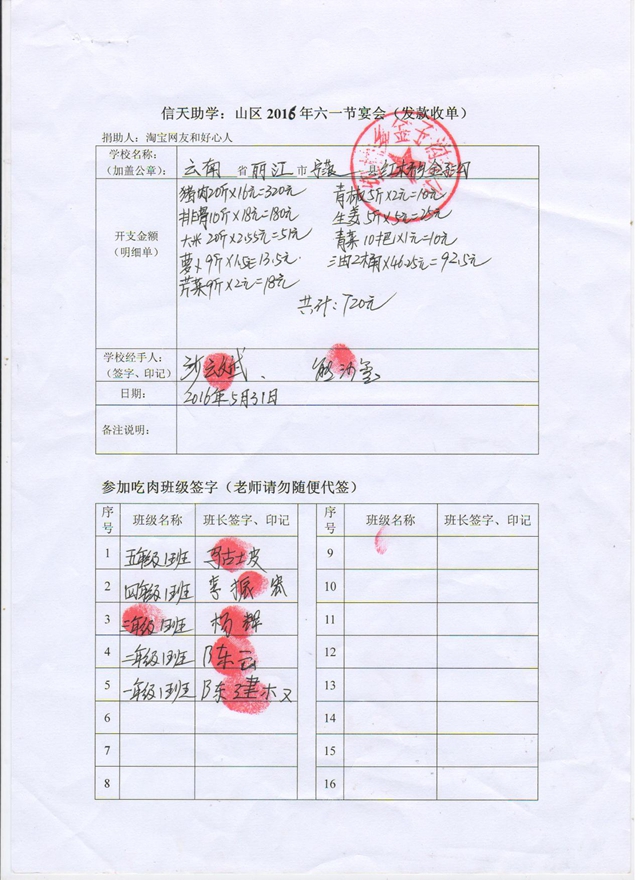 信天助学：山区2016年六一节宴会（发款收单）
捐助人：淘宝网友和好心人
学校名称：
（加盖公章）：
云南 省 丽江 市 宁蒗 县 红桥
开支金额
（明细单）
猪肉20斤×16元=320元 青椒5斤×2元=10元
排骨10斤×18元=180元 生姜5斤×5元=25元
大米20斤×2.55元=51元 青菜10把×1元=10元
萝卜9斤×1.5=13.5元 油2桶×46.25元=92.5元
芹菜9斤×2元=18元
共计：720元
学校经手人：
（签字、印记）
日期：
2016年5月31日
备注说明：
参加吃肉班级签字（老师请勿随便代签）
序号 班级名称 班长签字、印记 序号 班级名称 班长签字、印记
1 五年级1班 9
2 四年级1班 李振宏 10
3 三年级1班 杨辉 11
4 二年级1班 陈云 12
5 一年级1班 陈建 13
6 14
7 15
8 16